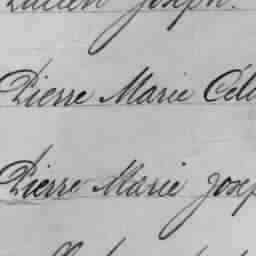 Lucien Joseph.
Pierre Marie Cél
Pierre Marie Josep